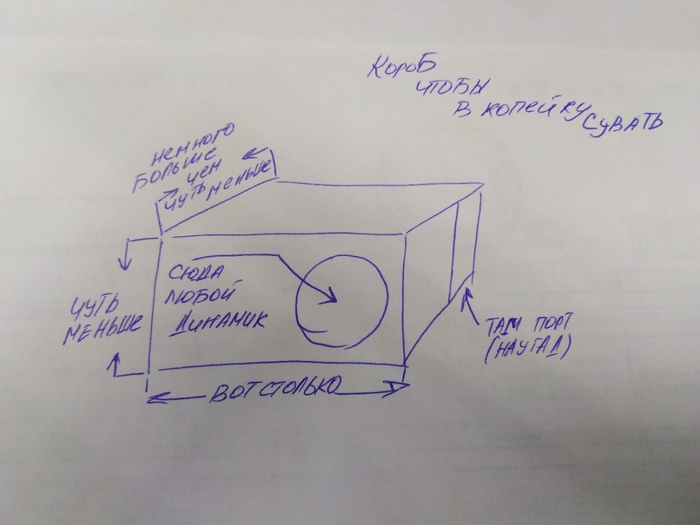 КОРОБ
ЧТОБЫ
В КОПЕЙКУ
СУВАТЬ
НЕМНОГО
БОЛЬШЕ
ЧЕМ
ЧУТЬ МЕНЬШЕ
СЮДА
ЛЮБОЙ
ДИНАМИК
ЧУТЬ
МЕНЬШЕ
ТАМ ПОРТ
(НАУГАД)
ВОТ СТОЛЬКО